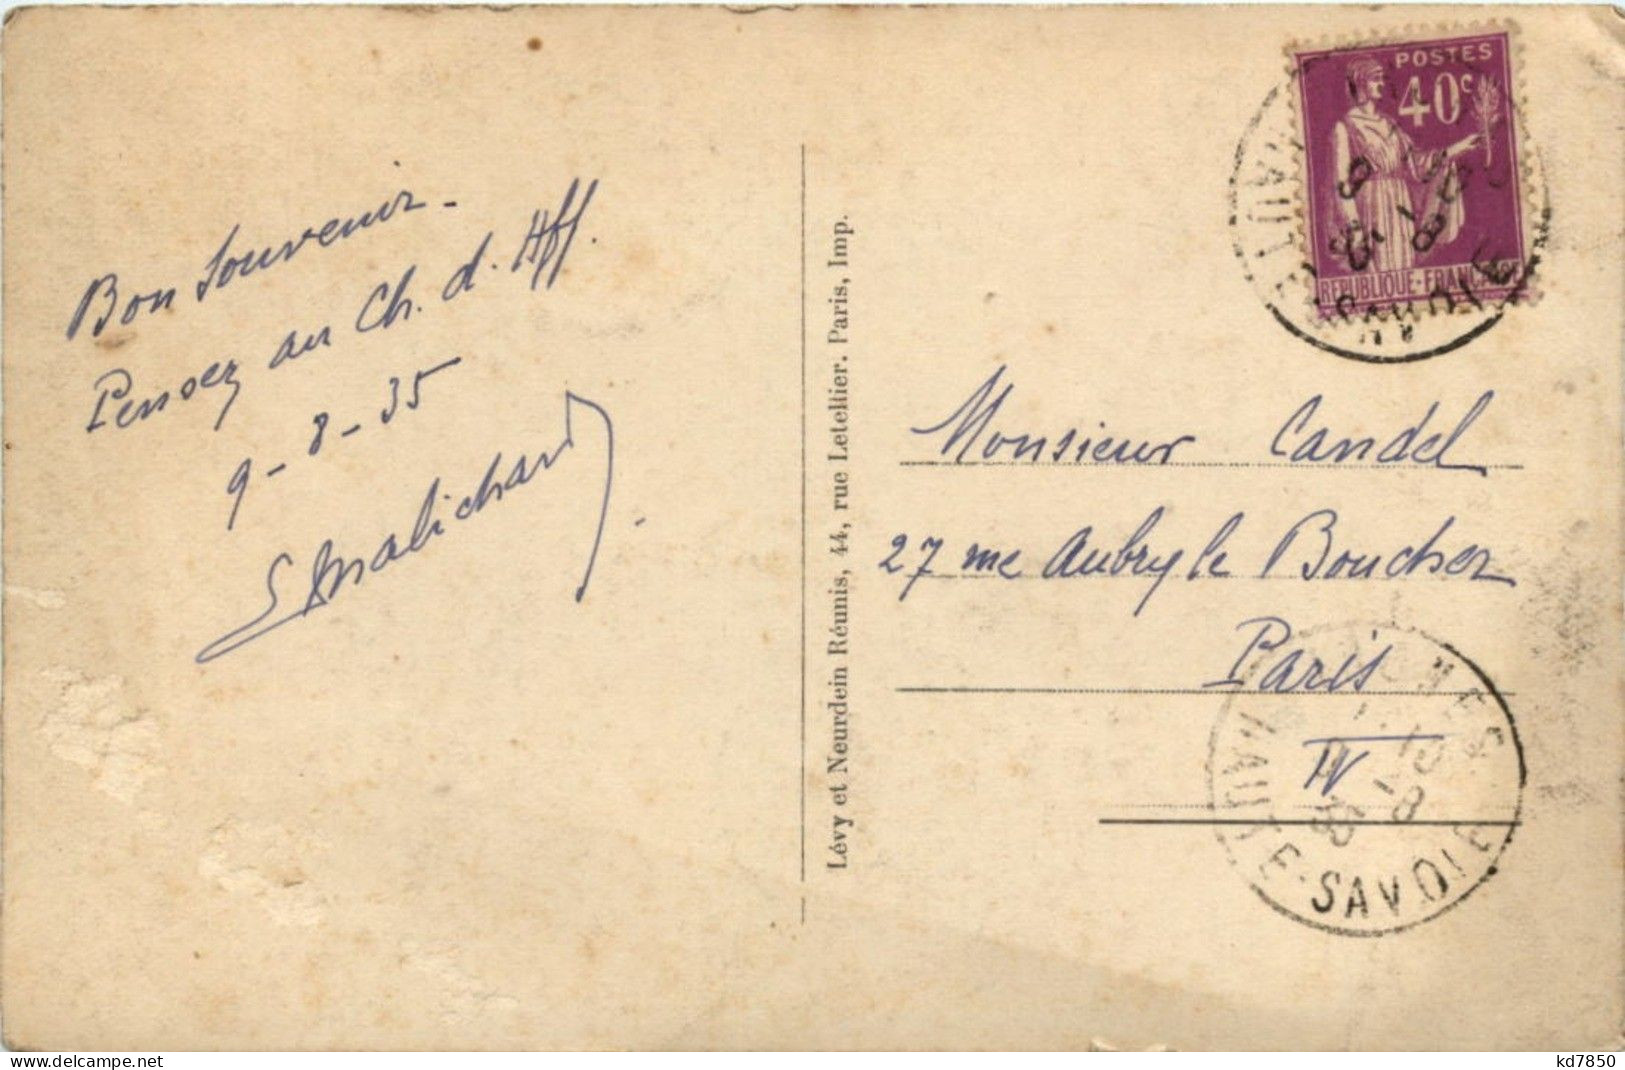 Bon Souvenir -
Pensez au Ch. d. Aff.
9 - 8 - 35
Lévy et Neurdein Réunis, 44, rue Letellier. Paris, Imp.
POSTES
40c
REPUBLIQUE-FRANÇAISE
Monsieur Candel
27 rue Aubry le Boucher
Paris
IV
HAUTE-SAVOIE
delcampe.net
kd7850